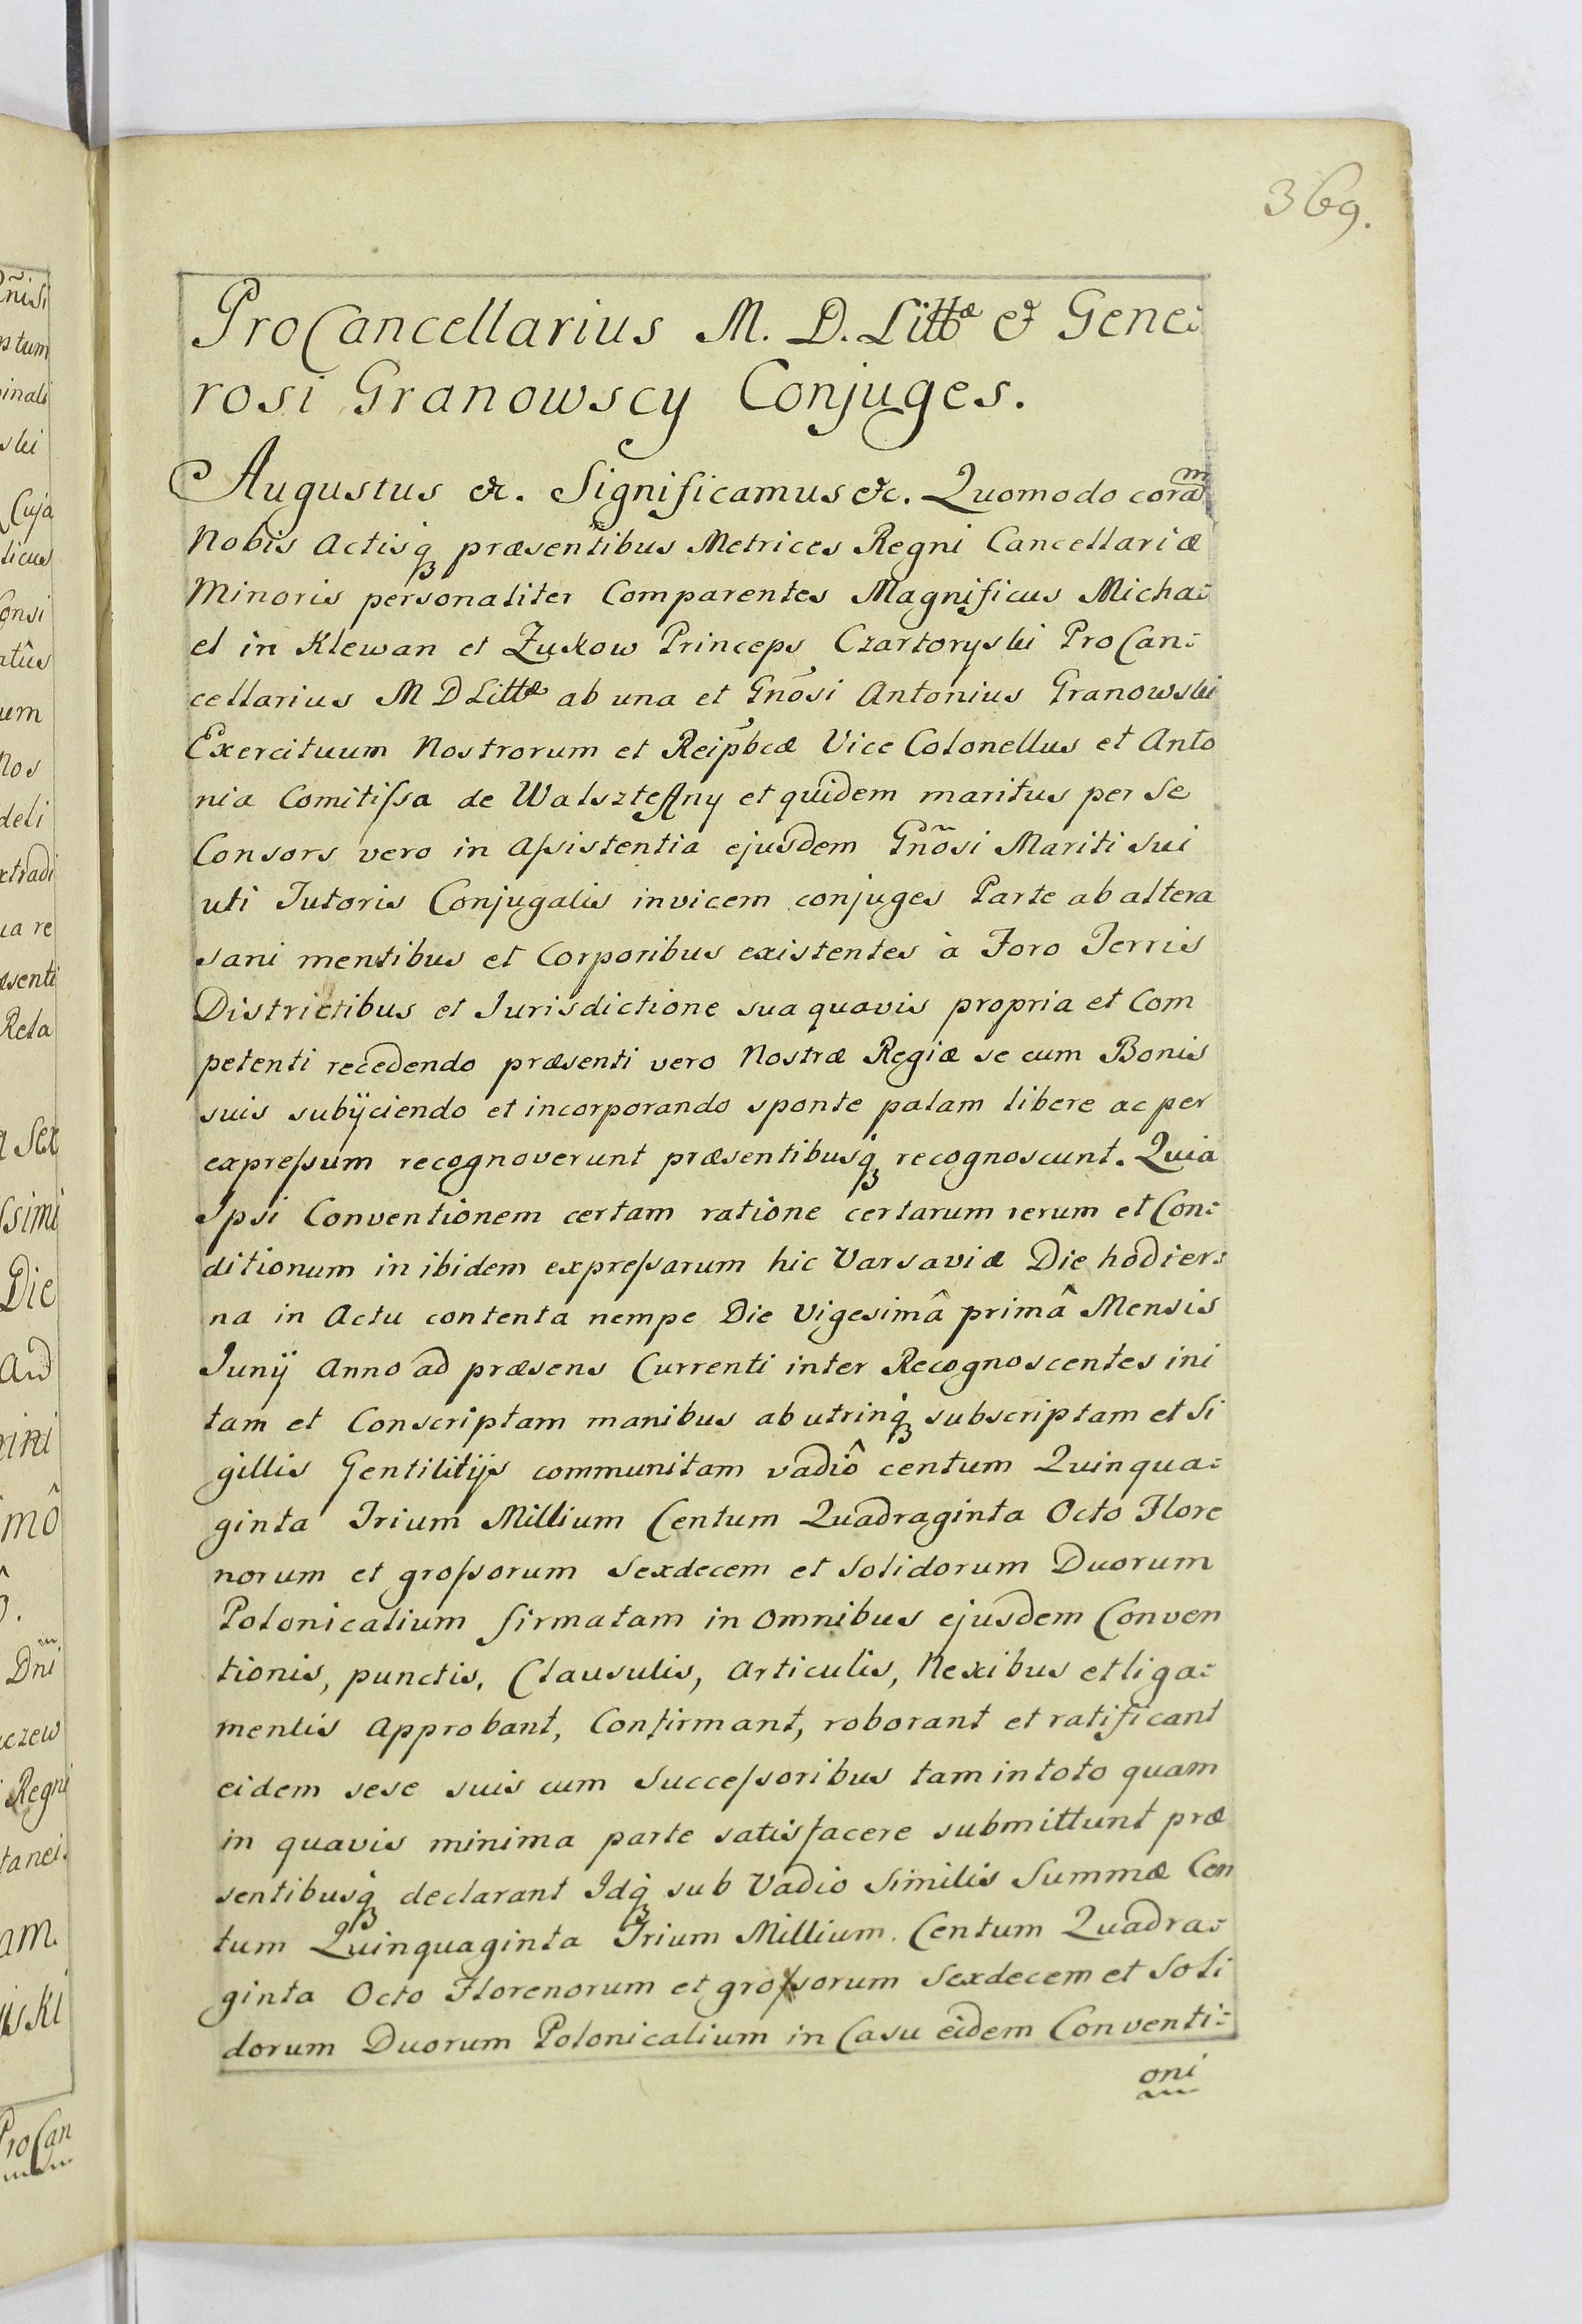 369.
ProCancellarius M. D. Littæ & Gene:
rosi Granowscy Conjuges.
Augustus &c. Significamus &c. Quomodo coram
Nobis Actisq₃ præsentibus Metrices Regni Cancellariæ
Minoris personaliter Comparentes Magnificus Micha:
el in Klewan et Zukow Princeps Czartoryski ProCan:
cellarius M D Littæ ab una et Gnõsi Antonius Granowski
Exercituum Nostrorum et Reip̃bcæ Vice Colonellus et Anto
nia Comitiſsa de Walszteyny et quidem maritus per se
Consors vero in Aſsistentia ejusdem Gnõsi Mariti Sui
uti Tutoris Conjugalis invicem conjuges Parte ab altera
sani mentibus et Corporibus existentes à Foro Terris
Districtibus et Jurisdictione sua quavis propria et Com
petenti recedendo præsenti vero Nostræ Regiæ se cum Bonis
suis subÿciendo et incorporando sponte palam libere ac per
expreſsum recognoverunt præsentibusq₃ recognoscunt. Quia
Ipsi Conventionem certam ratione certarum rerum et Con:
ditionum in ibidem expreſsarum hic Varsaviæ Die hodier:
na in Actu contenta nempe Die Vigesimâ primâ Mensis
Junÿ Anno ad præsens Currenti inter Recognoscentes ini
tam et Conscriptam manibus ab utrinq₃ subscriptam et Si
gillis Gentilitÿs communitam vadiô centum Quinqua:
ginta Trium Millium Centum Quadraginta Octo Flore
norum et groſsorum Sexdecem et Solidorum Duorum
Polonicalium firmatam in omnibus ejusdem Conven
tionis, punctis, Clausulis, Articulis, Nexibus et liga:
mentis Approbant, Confirmant, roborant et ratificant
eidem sese suis cum Succeſsoribus tam in toto quam
in quavis minima parte satisfacere submittunt præ
sentibusq₃ declarant Idq₃ sub Vadio Similis Summæ Cen
tum Quinquaginta Trium Millium. Centum Quadra:
ginta Octo Florenorum et groſsorum Sexdecem et Soli
dorum Duorum Polonicalium in Casu eidem Conventi:
oni